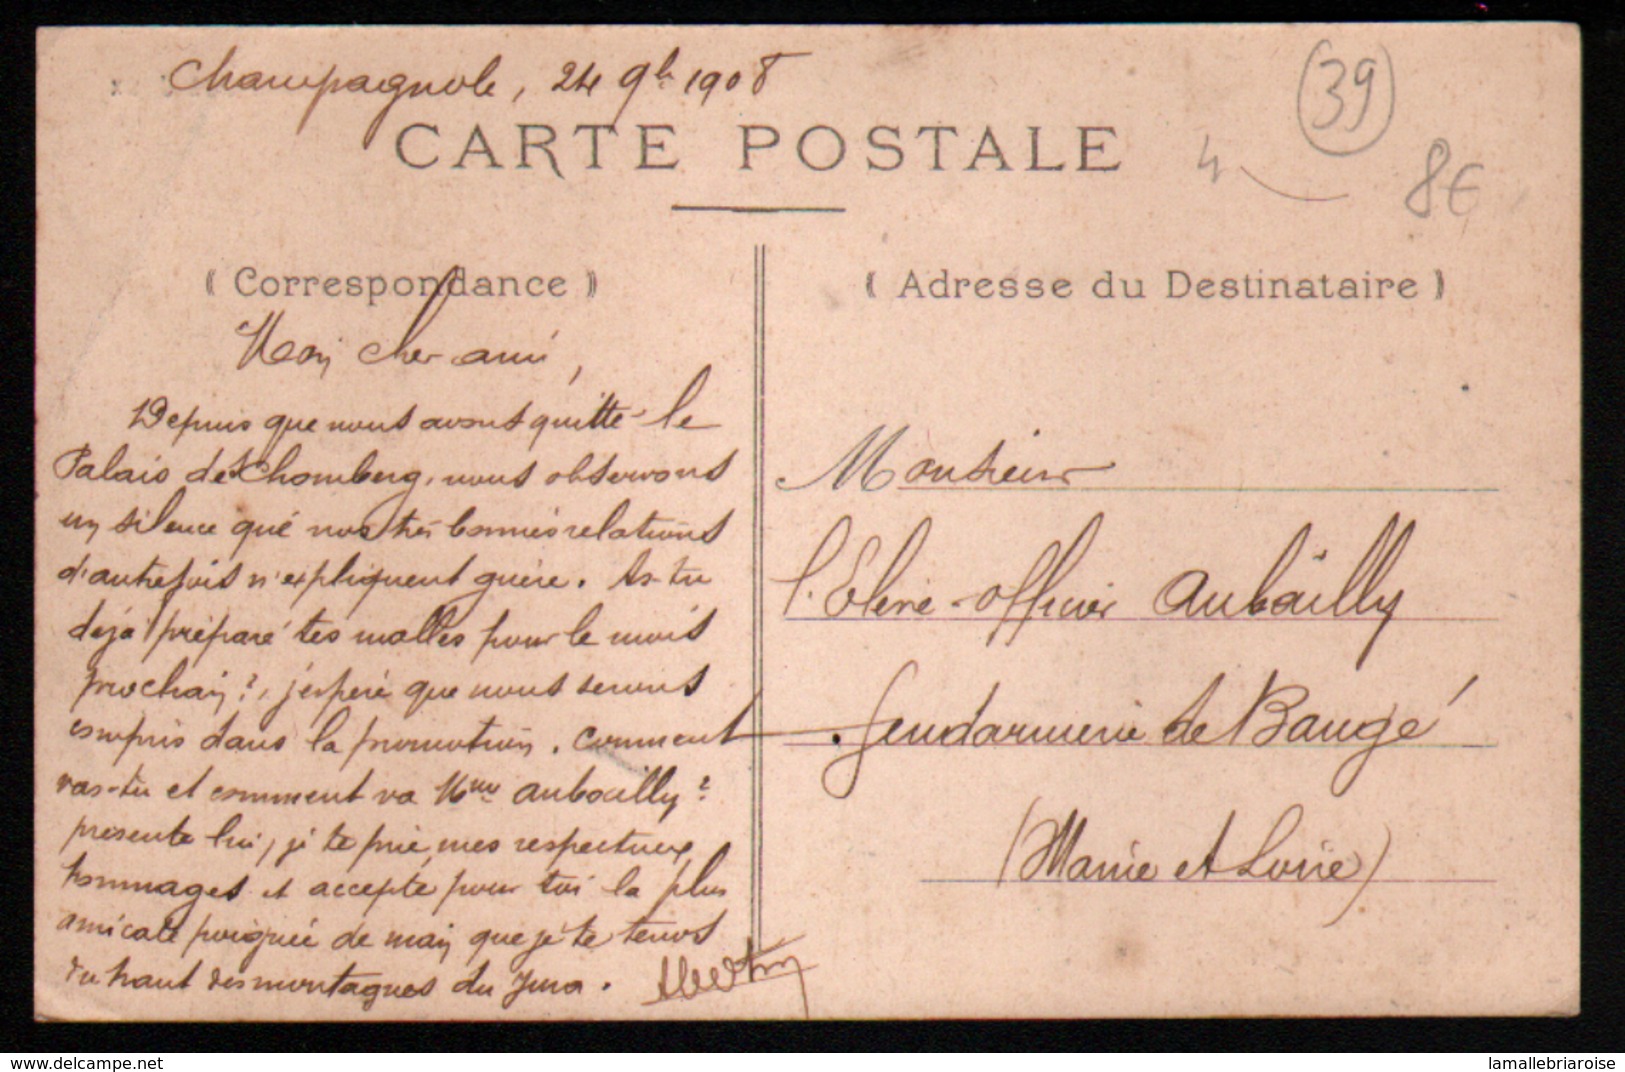 Champagnole, 24 9b 1908
39
CARTE POSTALE
4
8€
( Correspondance )
Mon cher ami,
Depuis que nous avons quitté le
Palais de Schomberg, nous observons
un silence que nos très bonnes relations
d'autrefois n'expliquent guère. As-tu
déjà préparé tes malles pour le mois
prochain ?, j'espère que nous serons
compris dans la promotion. Comment
vas-tu et comment va Mme Aubouilly ?
présente lui, je te prie, mes respectueux
hommages et accepte pour toi la plus
amicale poignée de main que je te tends
du haut des montagnes du Jura.
( Adresse du Destinataire )
Monsieur
l'Elève-officier Aubouilly
Gendarmerie de Baugé
(Maine et Loire)
www.delcampe.net
lamallebriaroise